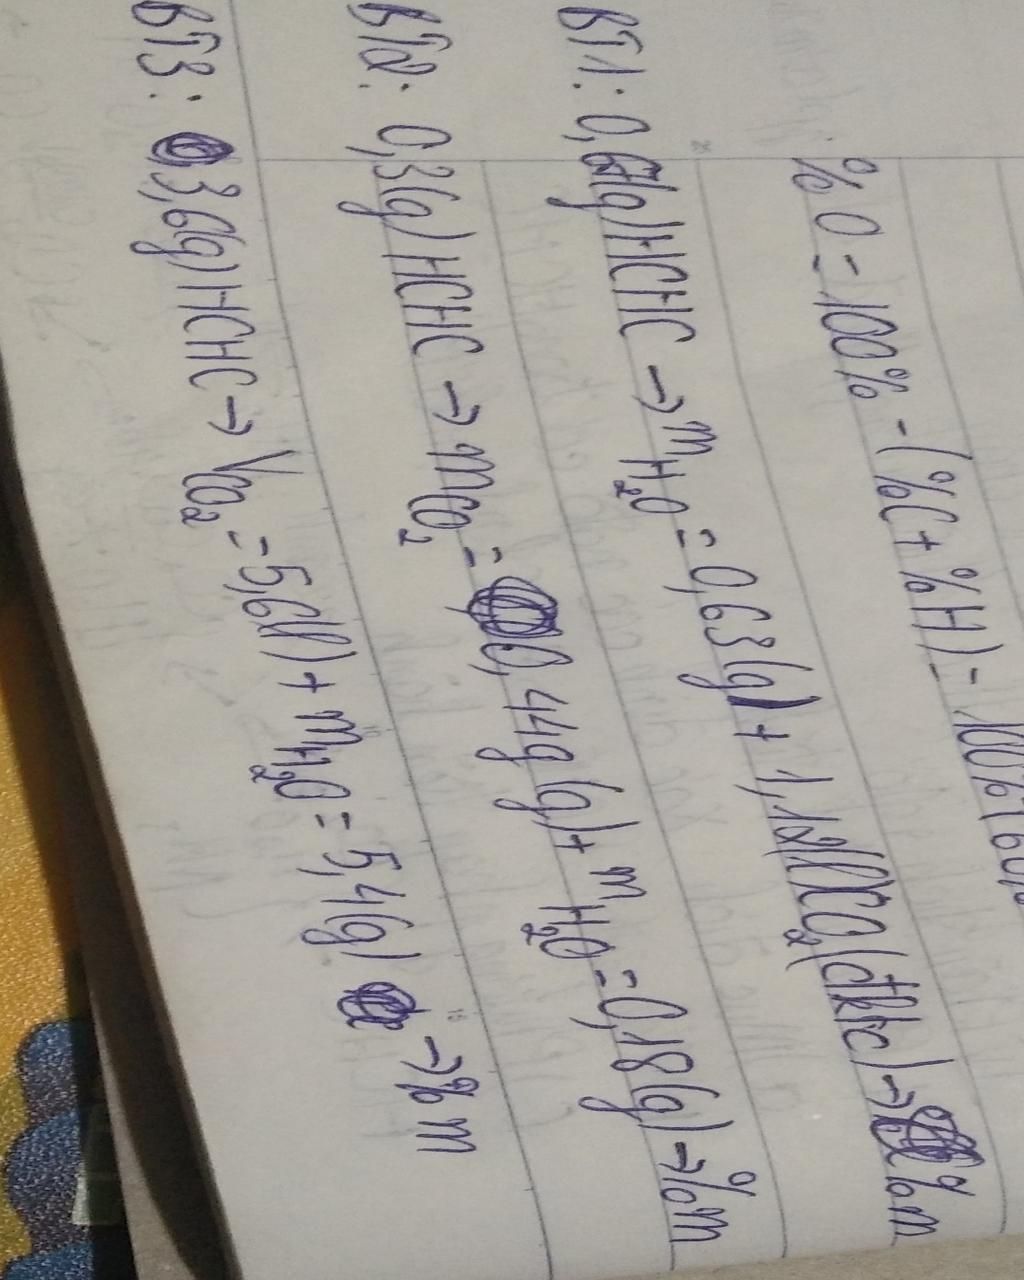 %O = 100% - (%C + %H) = 100% - (60,
BT1: 0,67(g) HCHC → mH₂O = 0,63(g) + 1,12(l) CO₂ (đktc) → %m
BT2: 0,3(g) HCHC → mCO₂ = 0,44g (g) + mH₂O = 0,18(g) → %m
BT3: 3,6(g) HCHC → VCO₂ = 5,6(l) + mH₂O = 5,4(g) → %m